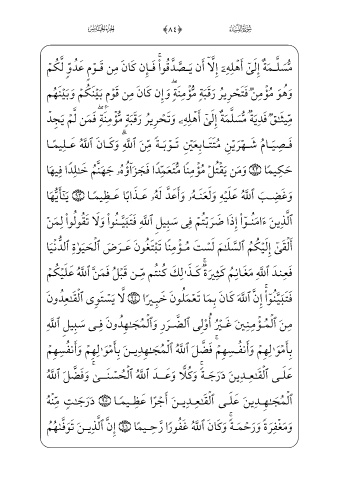 سُورَةُ النِّسَاءِ ﴿٨٤﴾ الجُزءُ الخَامِسُ
مُّسَلَّمَةٌ إِلَىٰٓ أَهْلِهِۦٓ إِلَّآ أَن يَصَّدَّقُوا۟ ۚ فَإِن كَانَ مِن قَوْمٍ عَدُوٍّ لَّكُمْ
وَهُوَ مُؤْمِنٌ فَتَحْرِيرُ رَقَبَةٍ مُّؤْمِنَةٍ ۖ وَإِن كَانَ مِن قَوْمٍۭ بَيْنَكُمْ وَبَيْنَهُم
مِّيثَٰقٌ فَدِيَةٌ مُّسَلَّمَةٌ إِلَىٰٓ أَهْلِهِۦ وَتَحْرِيرُ رَقَبَةٍ مُّؤْمِنَةٍ ۖ فَمَن لَّمْ يَجِدْ
فَصِيَامُ شَهْرَيْنِ مُتَتَابِعَيْنِ تَوْبَةً مِّنَ ٱللَّهِ ۗ وَكَانَ ٱللَّهُ عَلِيمًا
حَكِيمًا ﴿٩٢﴾ وَمَن يَقْتُلْ مُؤْمِنًا مُّتَعَمِّدًا فَجَزَآؤُهُۥ جَهَنَّمُ خَٰلِدًا فِيهَا
وَغَضِبَ ٱللَّهُ عَلَيْهِ وَلَعَنَهُۥ وَأَعَدَّ لَهُۥ عَذَابًا عَظِيمًا ﴿٩٣﴾ يَٰٓأَيُّهَا
ٱلَّذِينَ ءَامَنُوٓا۟ إِذَا ضَرَبْتُمْ فِى سَبِيلِ ٱللَّهِ فَتَبَيَّنُوا۟ وَلَا تَقُولُوا۟ لِمَنْ
أَلْقَىٰٓ إِلَيْكُمُ ٱلسَّلَٰمَ لَسْتَ مُؤْمِنًا تَبْتَغُونَ عَرَضَ ٱلْحَيَوٰةِ ٱلدُّنْيَا
فَعِندَ ٱللَّهِ مَغَانِمُ كَثِيرَةٌ ۚ كَذَٰلِكَ كُنتُم مِّن قَبْلُ فَمَنَّ ٱللَّهُ عَلَيْكُمْ
فَتَبَيَّنُوٓا۟ ۚ إِنَّ ٱللَّهَ كَانَ بِمَا تَعْمَلُونَ خَبِيرًا ﴿٩٤﴾ لَّا يَسْتَوِى ٱلْقَٰعِدُونَ
مِنَ ٱلْمُؤْمِنِينَ غَيْرُ أُو۟لِى ٱلضَّرَرِ وَٱلْمُجَٰهِدُونَ فِى سَبِيلِ ٱللَّهِ
بِأَمْوَٰلِهِمْ وَأَنفُسِهِمْ ۚ فَضَّلَ ٱللَّهُ ٱلْمُجَٰهِدِينَ بِأَمْوَٰلِهِمْ وَأَنفُسِهِمْ
عَلَى ٱلْقَٰعِدِينَ دَرَجَةً ۚ وَكُلًّا وَعَدَ ٱللَّهُ ٱلْحُسْنَىٰ ۚ وَفَضَّلَ ٱللَّهُ
ٱلْمُجَٰهِدِينَ عَلَى ٱلْقَٰعِدِينَ أَجْرًا عَظِيمًا ﴿٩٥﴾ دَرَجَٰتٍ مِّنْهُ
وَمَغْفِرَةً وَرَحْمَةً ۚ وَكَانَ ٱللَّهُ غَفُورًا رَّحِيمًا ﴿٩٦﴾ إِنَّ ٱلَّذِينَ تَوَفَّىٰهُمُ